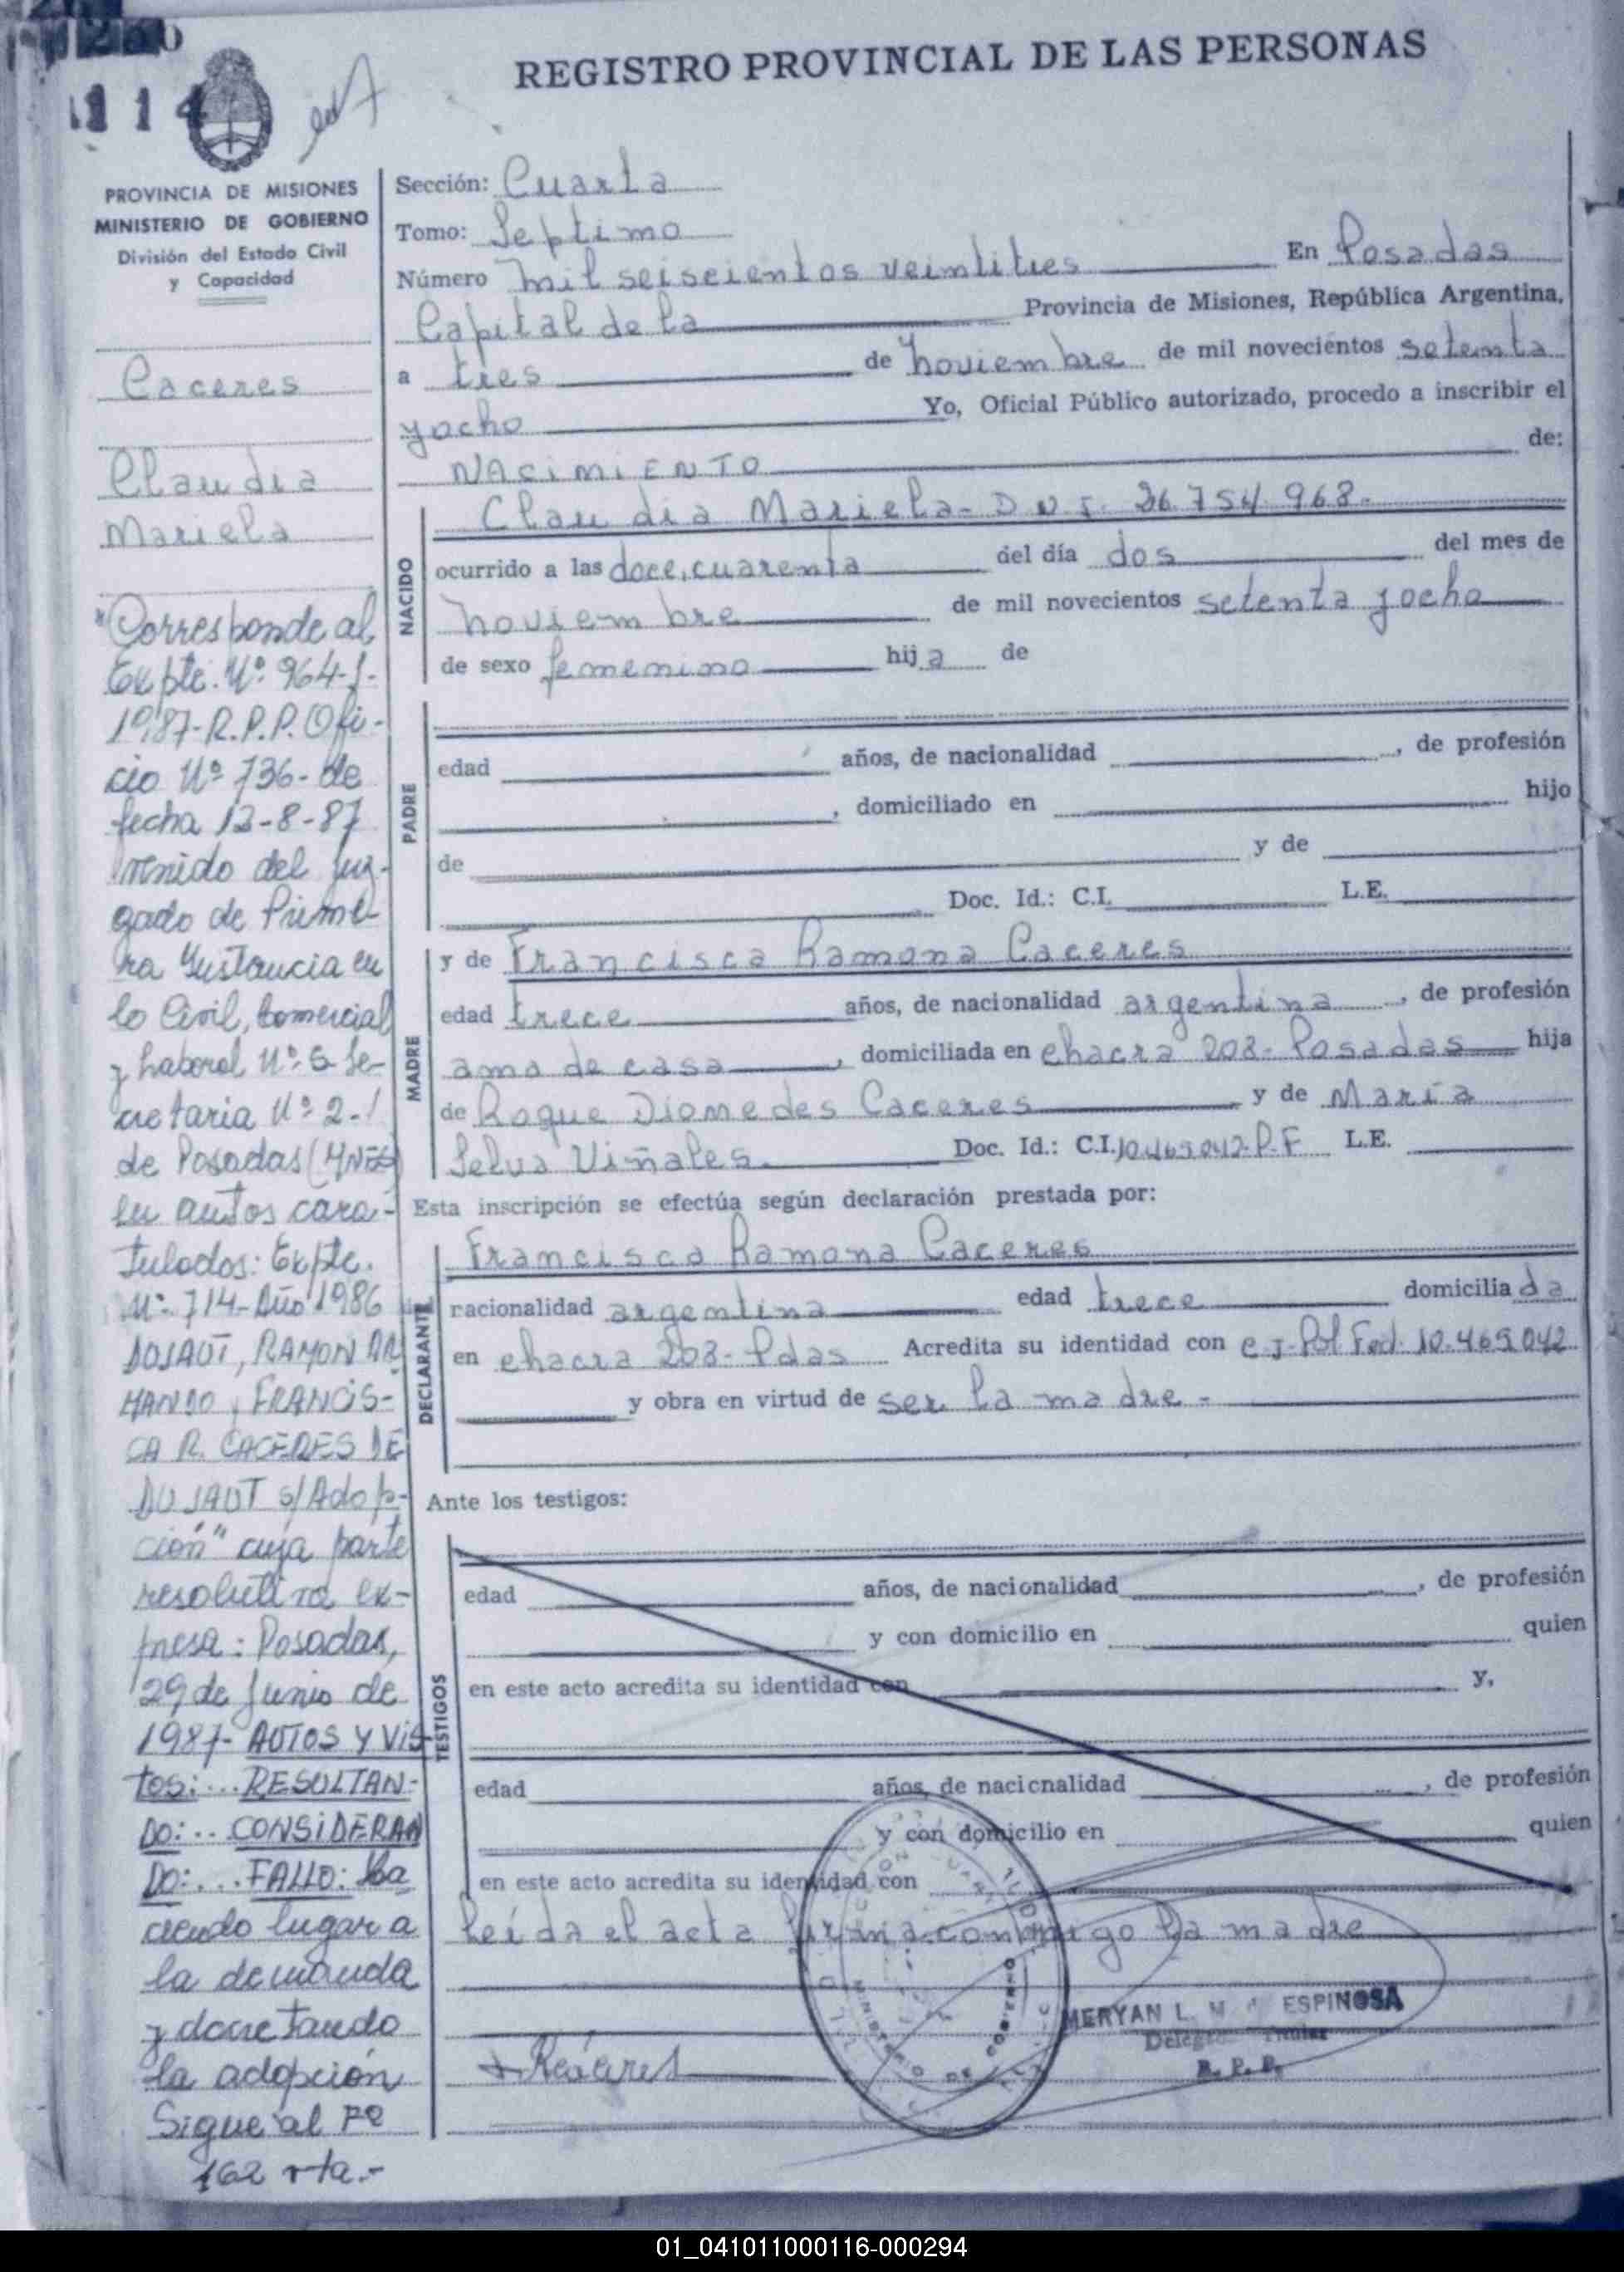 114
REGISTRO PROVINCIAL DE LAS PERSONAS
PROVINCIA DE MISIONES
MINISTERIO DE GOBIERNO
División del Estado Civil
y Capacidad
Caceres
Claudia
Mariela
"Corresponde al
Expte. Nº 964-J-
1987-R.P.P. Ofi-
cio Nº 736- de
fecha 13-8-87
venido del Juz-
gado de Prime-
ra Instancia en
lo Civil, Comercial
y Laboral Nº 5 Se-
cretaria Nº 2-
de Posadas (MNES)
en autos cara-
tulados: Expte.
Nº 714-Año 1986
DUJAUT, RAMON AR
MANDO y FRANCIS-
CA R. CACERES DE
DUJAUT s/Adop-
ción" cuya parte
resolutiva ex-
presa: Posadas,
29 de Junio de
1987- AUTOS Y VIS
TOS:... RESULTAN-
DO:.. CONSIDERAN
DO:... FALLO: Ha
ciendo lugar a
la demanda
y decretando
la adopción
Sigue al Fº
162 vta.-
Sección: Cuarta
Tomo: Septimo
Número mil seiscientos veintitres En Posadas
Capital de la Provincia de Misiones, República Argentina,
a tres de noviembre de mil novecientos setenta
yocho Yo, Oficial Público autorizado, procedo a inscribir el
NACIMIENTO de:
NACIDO
Claudia Mariela- D N I. 26.754.968-
ocurrido a las doce, cuarenta del día dos del mes de
noviembre de mil novecientos setenta yocho
de sexo femenino hija de
PADRE
edad años, de nacionalidad , de profesión
, domiciliado en hijo
de y de
Doc. Id.: C.I. L.E.
MADRE
y de Francisca Ramona Caceres
edad trece años, de nacionalidad argentina , de profesión
ama de casa , domiciliada en chacra 208- Posadas hija
de Roque Diomedes Caceres y de María
Selva Viñales. Doc. Id.: C.I. 10.465.042-P.F L.E.
Esta inscripción se efectúa según declaración prestada por:
DECLARANTE
Francisca Ramona Caceres
nacionalidad argentina edad trece domiciliada
en chacra 208- Pdas Acredita su identidad con C.I-Pol Fed. 10.465.042
y obra en virtud de ser la madre-
Ante los testigos:
TESTIGOS
edad años, de nacionalidad , de profesión
y con domicilio en quien
en este acto acredita su identidad con y,
edad años, de nacionalidad , de profesión
y con domicilio en quien
en este acto acredita su identidad con
Leída el acta firma conmigo la madre
MINISTERIO DE GOBIERNO
MERYAN L. ESPINOSA
Titular
R. P. P.
01_041011000116-000294